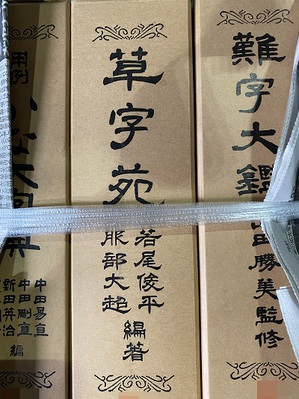 難字大鑑
山田勝美監修
草字苑
若尾俊平
服部大超
編著
用例
かな大字典
中田易直
中田剛直
新田英治
編